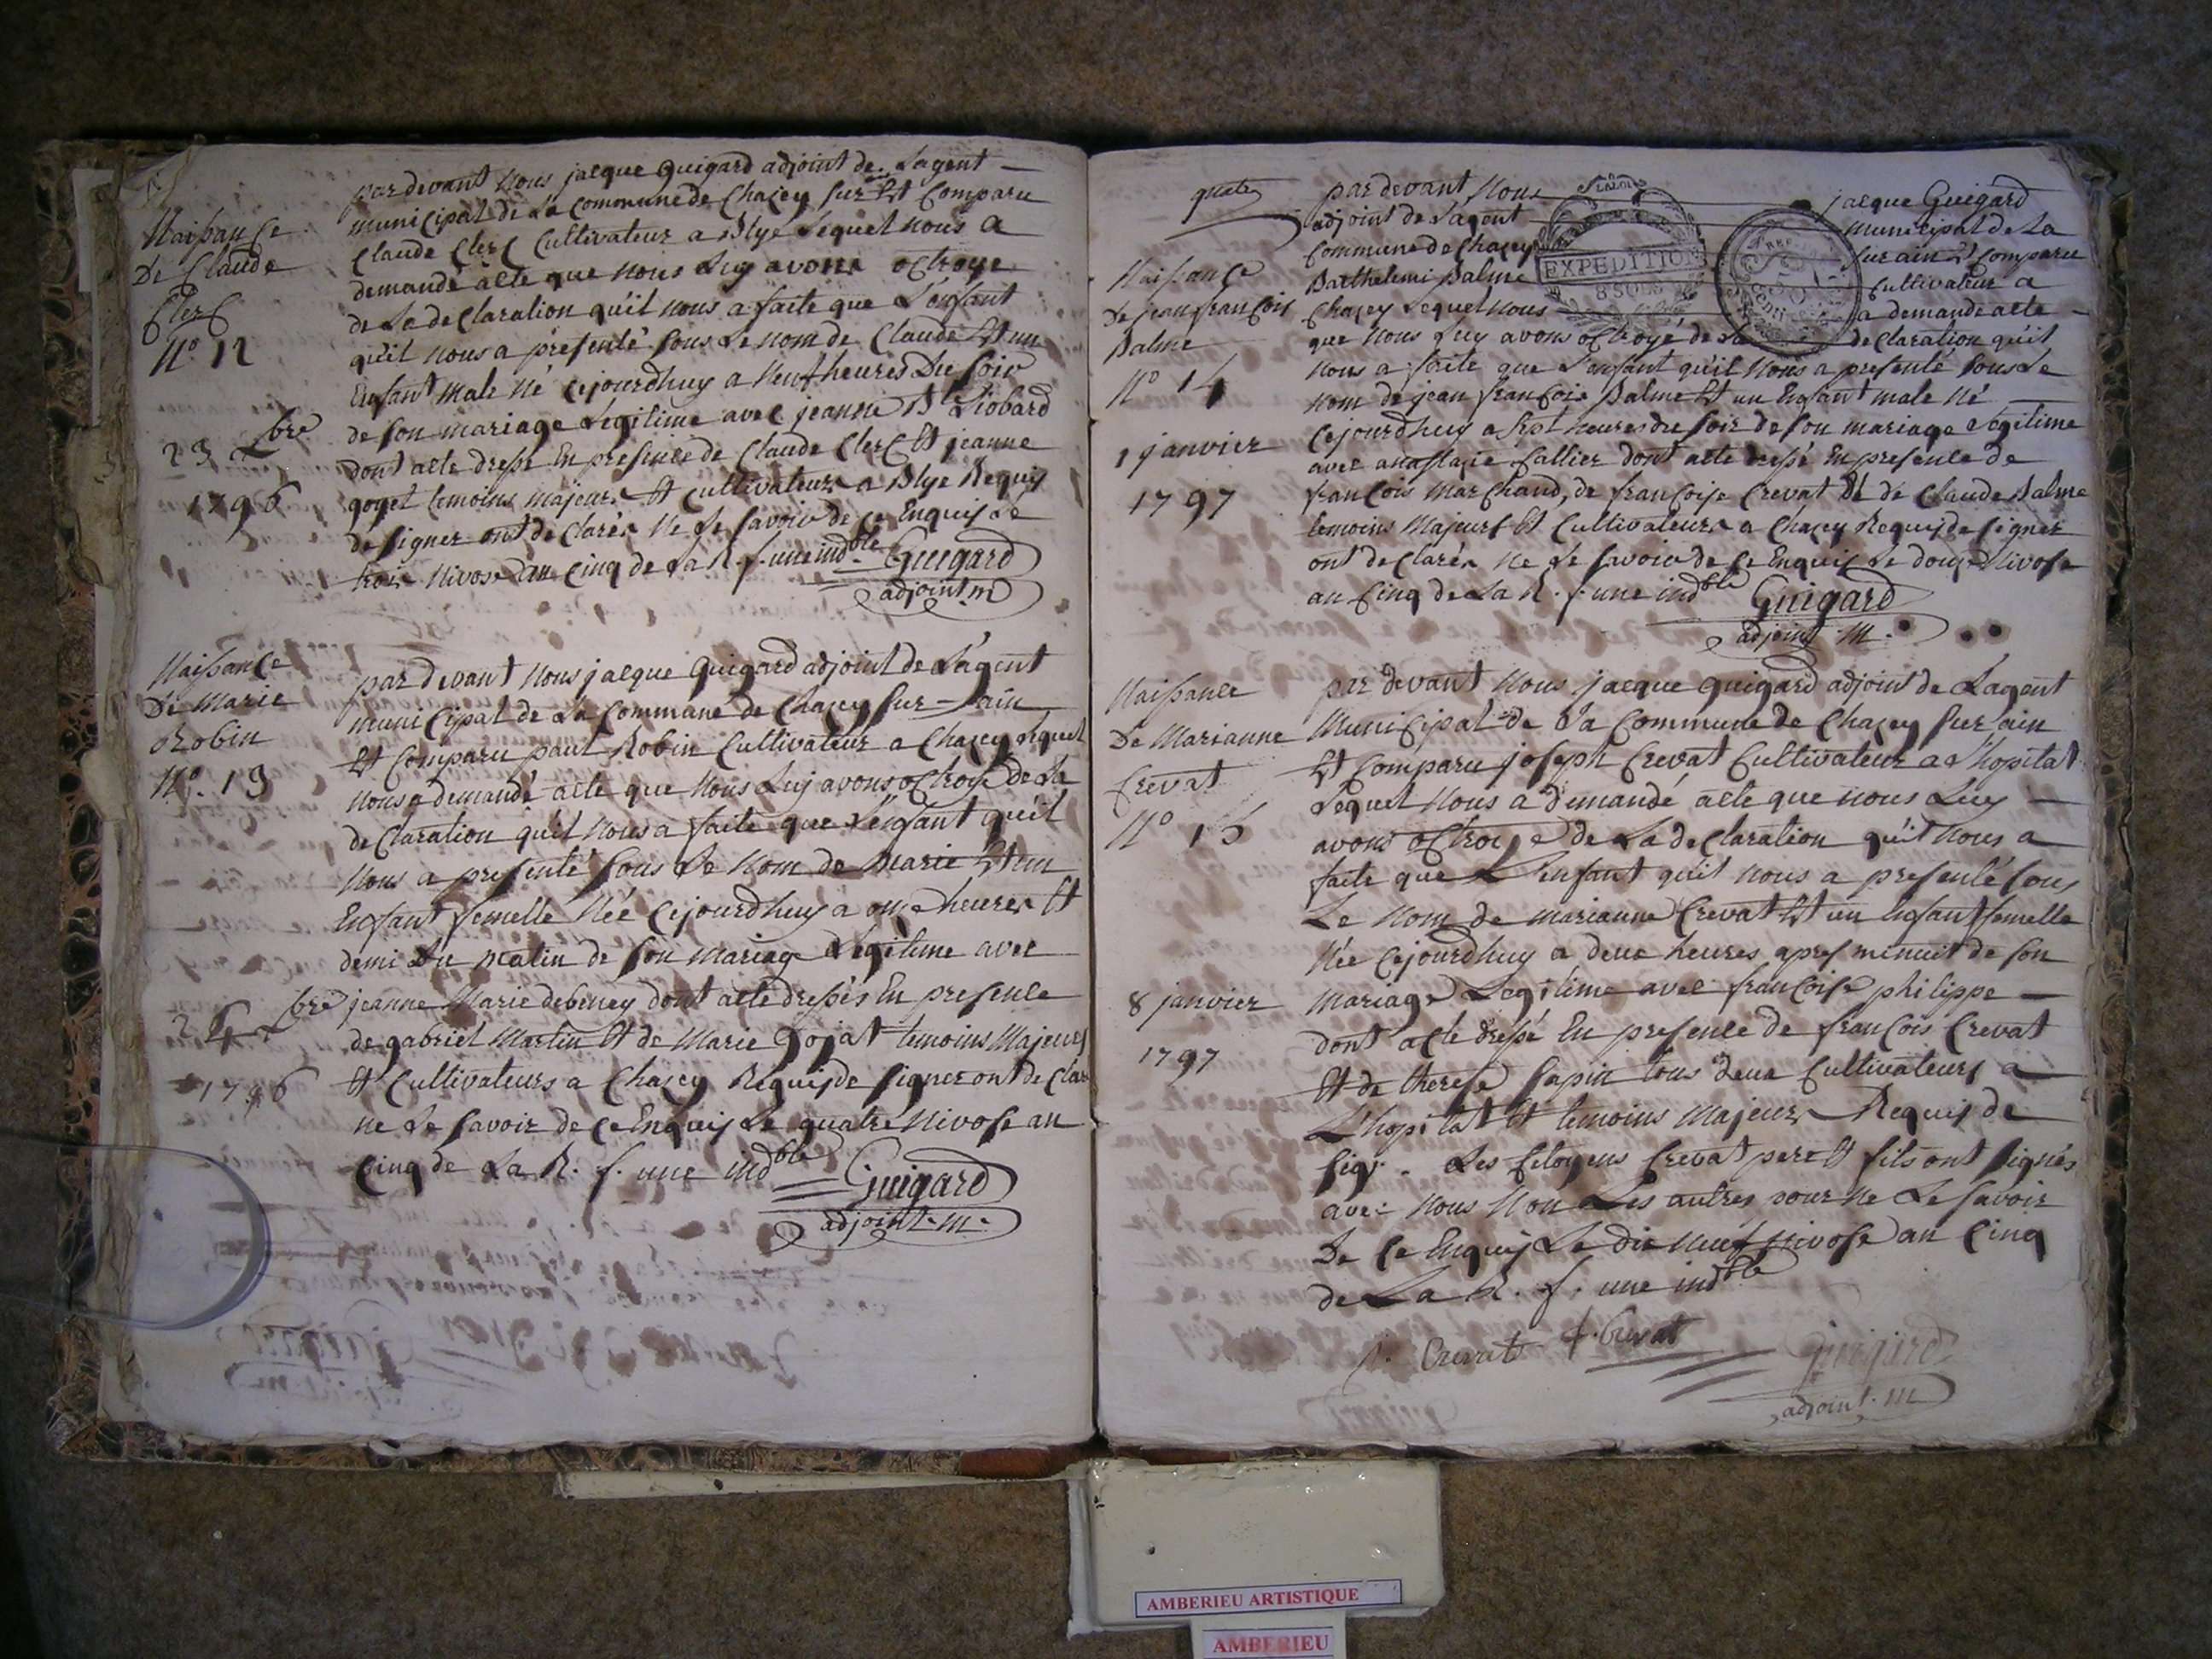 Naissance
De Claude
Clerc
N.o 12
23 Xbre
1796
par devant Nous jacque Guigard adjoint de Lagent
municipal de La Commune de Chazey sur Est Comparu
Claude Clerc Cultivateur a Blye Lequel nous a
demandé acte que nous Luy avons octroye
de La declaration qu'il nous a faite que L'enfant
qu'il nous a présenté sous Le nom de Claude Est un
Enfant male Né cejourdhuy a Neuf heures Du soir
de son mariage Legitime avec jeanne Liobard
dont acte dressé En presence de Claude Clerc Et jeanne
goyet temoins majeurs Et Cultivateurs a Blye Requis
de signer ont declarés Ne Le savoir de ce Enquis Le
trois Nivose an Cinq de La R. f. une indble Guigard
adjoint m
Naissance
De Marie
Robin
N.o 13
24 Xbre
1796
par devant Nous jacque Guigard adjoint de L'agent
municipal de La Commune de Chazey sur ain
Est Comparu paul Robin Cultivateur a Chazey Lequel
nous a demandé acte que Nous Luy avons octroyé de La
declaration qu'il nous a faite que L'enfant qu'il
Nous a presenté sous Le nom de Marie Est un
Enfant femelle Née Cejourdhuy a onze heures Et
demi Du matin de son Mariage Legitime avec
jeanne Marie debeney dont acte dressés En presence
de gabriel Martin Et de Marie Gojat temoins Majeurs
Et Cultivateurs a Chazey Requis de signer ont declar
ne Le savoir de ce Enquis Le quatre Nivose an
Cinq de La R. f. une indble Guigard
adjoint. m.
quatre
Naissance
De jean françois
Balme
No 14
1 janvier
1797
par devant Nous jacque Guigard
adjoint de L'agent municipal de La
Commune de Chazey sur ain Est Comparu
Barthelemi Balme Cultivateur a
Chazey Lequel nous a demandé acte
que nous Luy avons octroyé de La declaration qu'il
EXPEDITION
8 SOLS
nous a faite que L'enfant qu'il Nous a presenté sous Le
nom de jean françois Balme Est un Enfant male Né
Cejourdhuy a sept heures du soir de son mariage Legitime
avec anastazie fallier dont acte dressé En presence de
françois Marchand, de françoise Crevat Et de Claude Balme
temoins Majeurs Et Cultivateurs a Chazey Requis de signer
ont declarés Ne Le savoir de ce Enquis Le douze Nivose
an Cinq de La R. f. une indble Guigard
adjoint m.
Naissance
De Marianne
Crevat
No 15
8 janvier
1797
par devant Nous jacque Guigard adjoint de Lagent
Municipal de La Commune de Chazey sur ain
Est Comparu joseph Crevat Cultivateur a L'hopital
Lequel Nous a demandé acte que nous Luy
avons octroyé de La declaration qu'il nous a
faite que L'enfant qu'il nous a presenté sous
Le nom de Marianne Crevat Est un Enfant femelle
Née Cejourdhuy a deux heures apres minuit de son
mariage Legitime avec françoise philippe
dont acte dressé En presence de françois Crevat
Et de therese sapin tous deux Cultivateurs a
L'hopital Et temoins Majeurs Requis de
sig. Les Citoyens Crevat pere Et fils ont signés
avec nous Non Les autres pour ne Le savoir
De ce Enquis Le dix neuf Nivose an Cinq
de La R. f. une indble
Crevat f. Crevat Guigard
adjoint. m
AMBERIEU ARTISTIQUE
AMBERIEU